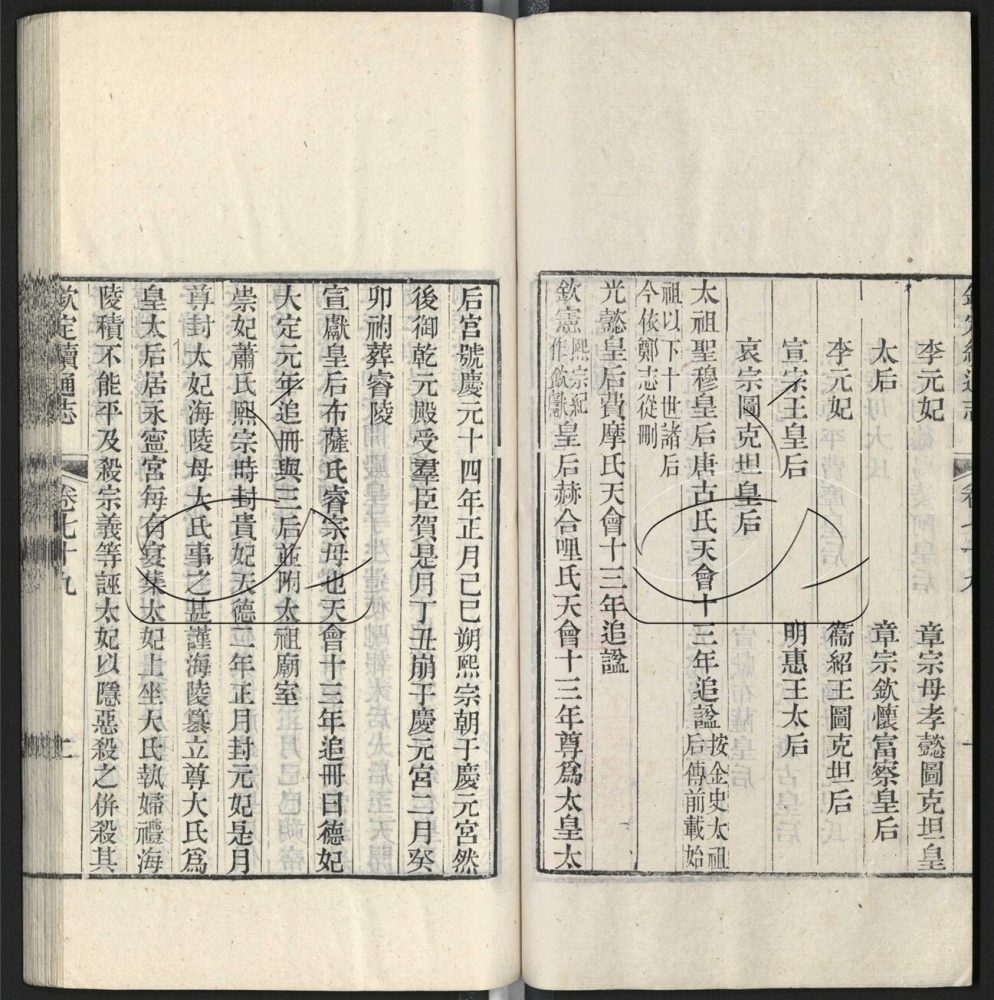 李元妃　章宗母孝懿圖克坦皇
太后　章宗欽懷富察皇后
李元妃　衞紹王圖克坦后
宣宗王皇后　明惠王太后
哀宗圖克坦皇后
太祖聖穆皇后唐古氏天會十三年追諡按金史太祖后傳前載始
祖以下十世諸后今依鄭志從刪
光懿皇后費摩氏天會十三年追諡
欽憲熙宗紀作欽獻皇后赫舍哩氏天會十三年尊爲太皇太
后宮號慶元十四年正月己巳朔熙宗朝于慶元宮然
後御乾元殿受羣臣賀是月丁丑崩于慶元宮二月癸
卯祔葬睿陵
宣獻皇后布薩氏睿宗母也天會十三年追冊曰德妃
大定元年追冊與三后並祔太祖廟室
崇妃蕭氏熙宗時封貴妃天德二年正月封元妃是月
尊封太妃海陵母大氏事之甚謹海陵篡立尊大氏爲
皇太后居永寧宮每有宴集太妃上坐大氏執婦禮海
陵積不能平及殺宗義等誣太妃以隱惡殺之併殺其
欽定續通志　卷七十九　二